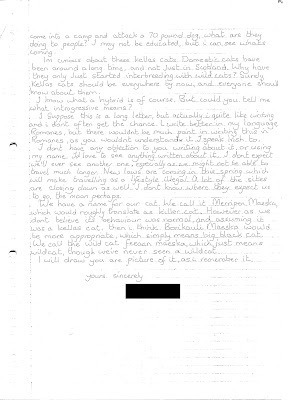 come into a camp and attack a 70 pound dog, what are they
doing to people? I may not be educated, but i can see whats
coming.
Im curious about these kellas cats. Domestic cats have
been around a long time, and not just in Scotland. Why have
they only just started interbreeding with wild cats? Surely
Kellas cats should be everywhere by now, and everyone should
know about them.
I know what a hybrid is of course. But could you tell me
what introgressive means?
I suppose this is a long letter, but actually i quite like writing
and i dont often get the chance. I write better in my language
Romanes, but there wouldnt be much point in writing this in
Romanes, as you wouldnt understand it. I speak Irish to.
I dont have any objection to you writing about it, or using
my name. Id love to see anything written about it. I dont expect
we'll ever see another one, especially as we might not be able to
travel much longer. New laws are coming in this spring which
will make travelling as a lifestyle illegal. A lot of the sites
are closing down as well. I dont know where they expect us
to go, the moon perhaps.
We have a name for our cat. We call it Merripen Matska,
which would roughly translate as killer cat. However as we
dont believe its behaviour was normal, and assuming it
was a kellas cat, then i think Matska would
be more appropriate, which simply means big black cat.
We call the wild cat Matska which just means
wildcat, though we've never seen a wildcat.
I will draw you are picture of it, as i remember it.
yours sincerely